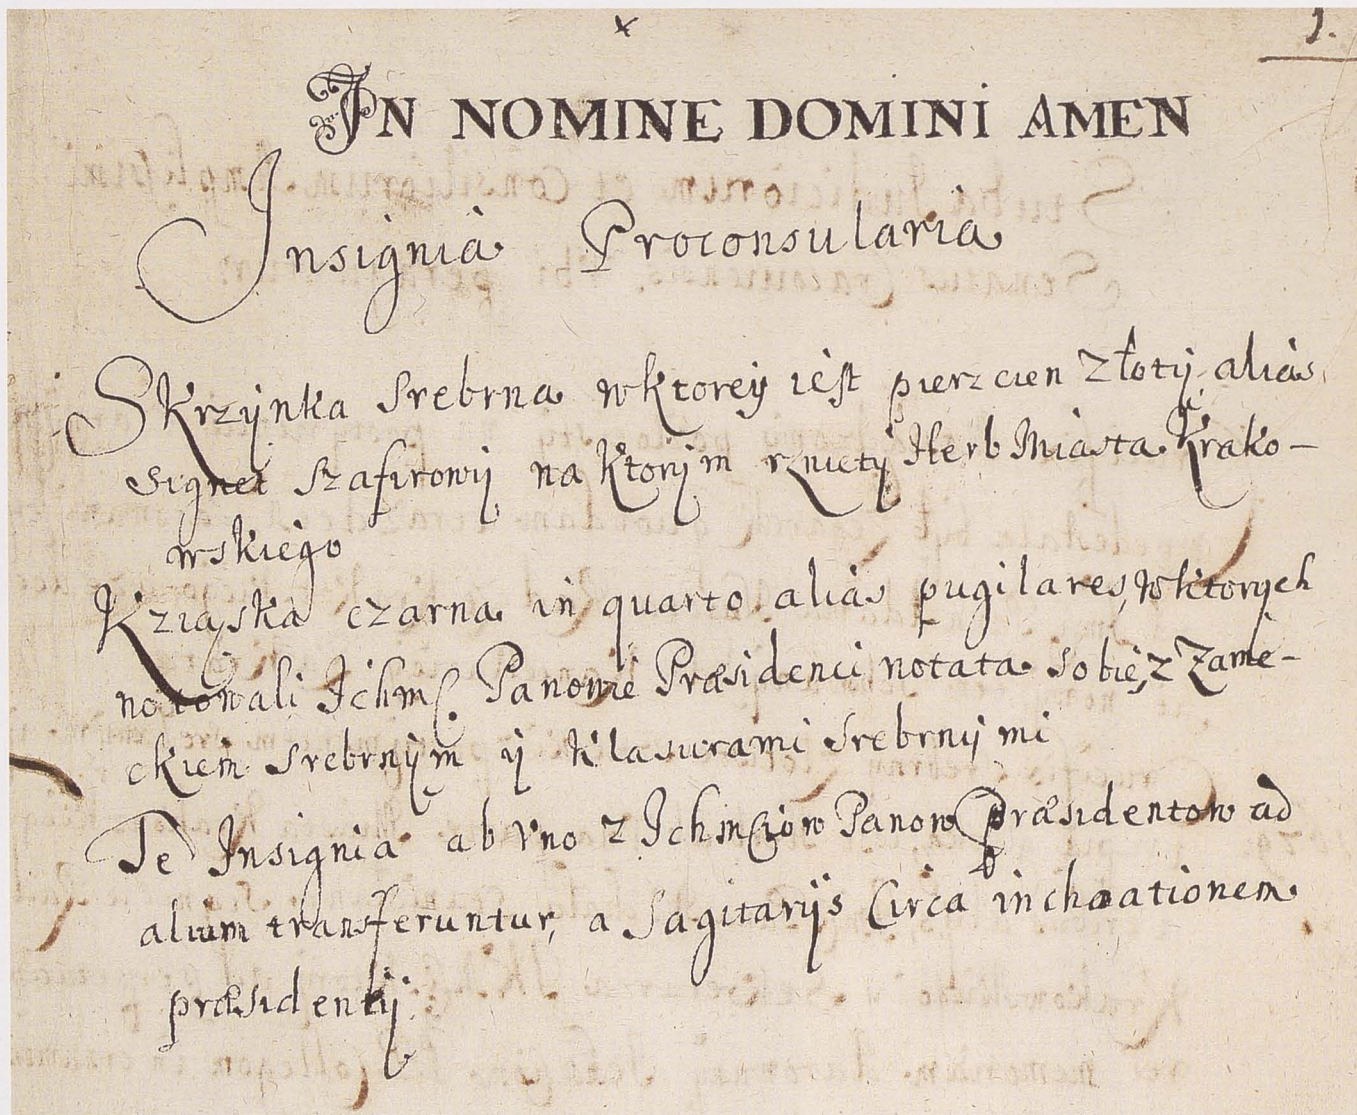 1.
IN NOMINE DOMINI AMEN
Insignia Proconsularia
Skrzynka srebrna w ktorey iest pierzcien złoty alias
signet szafirowy na ktorym rznięty Herb Miasta Krako-
wskiego
Kziąska czarna in quarto alias pugilares, w ktorych
notowali Ichmę Panowie Præsidenci notata sobie, z Zame-
ckiem srebrnym y Klasurami srebrnymi
Te Insignia ab vno z Ichmciow Panow Præsidentow ad
alium transferuntur, a Sagitarijs Circa inchoationem
præsidentij.